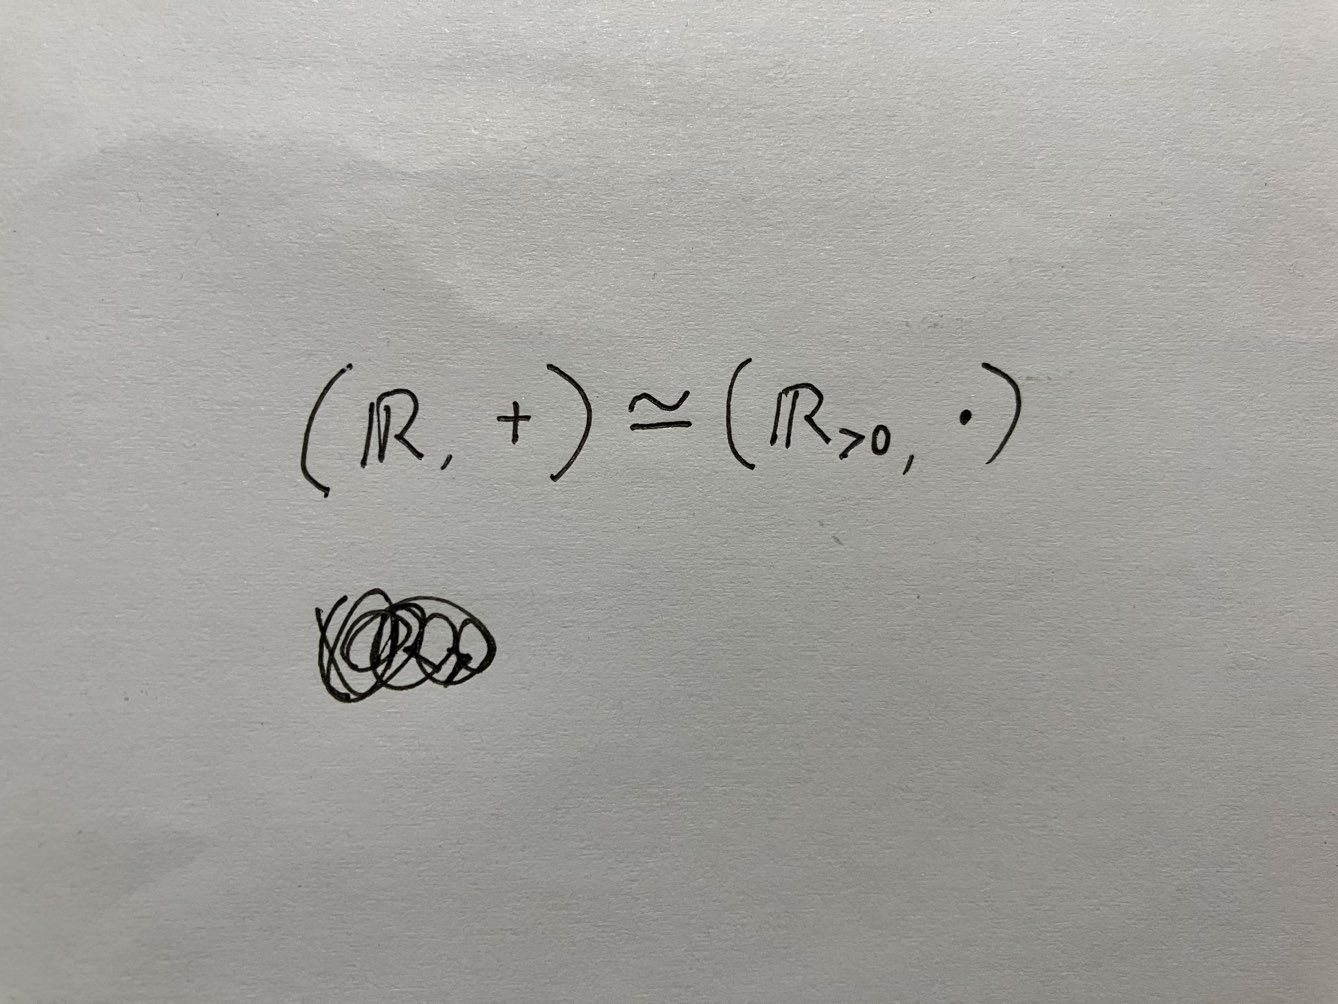 (ℝ, +) ≃ (ℝ>0, ·)